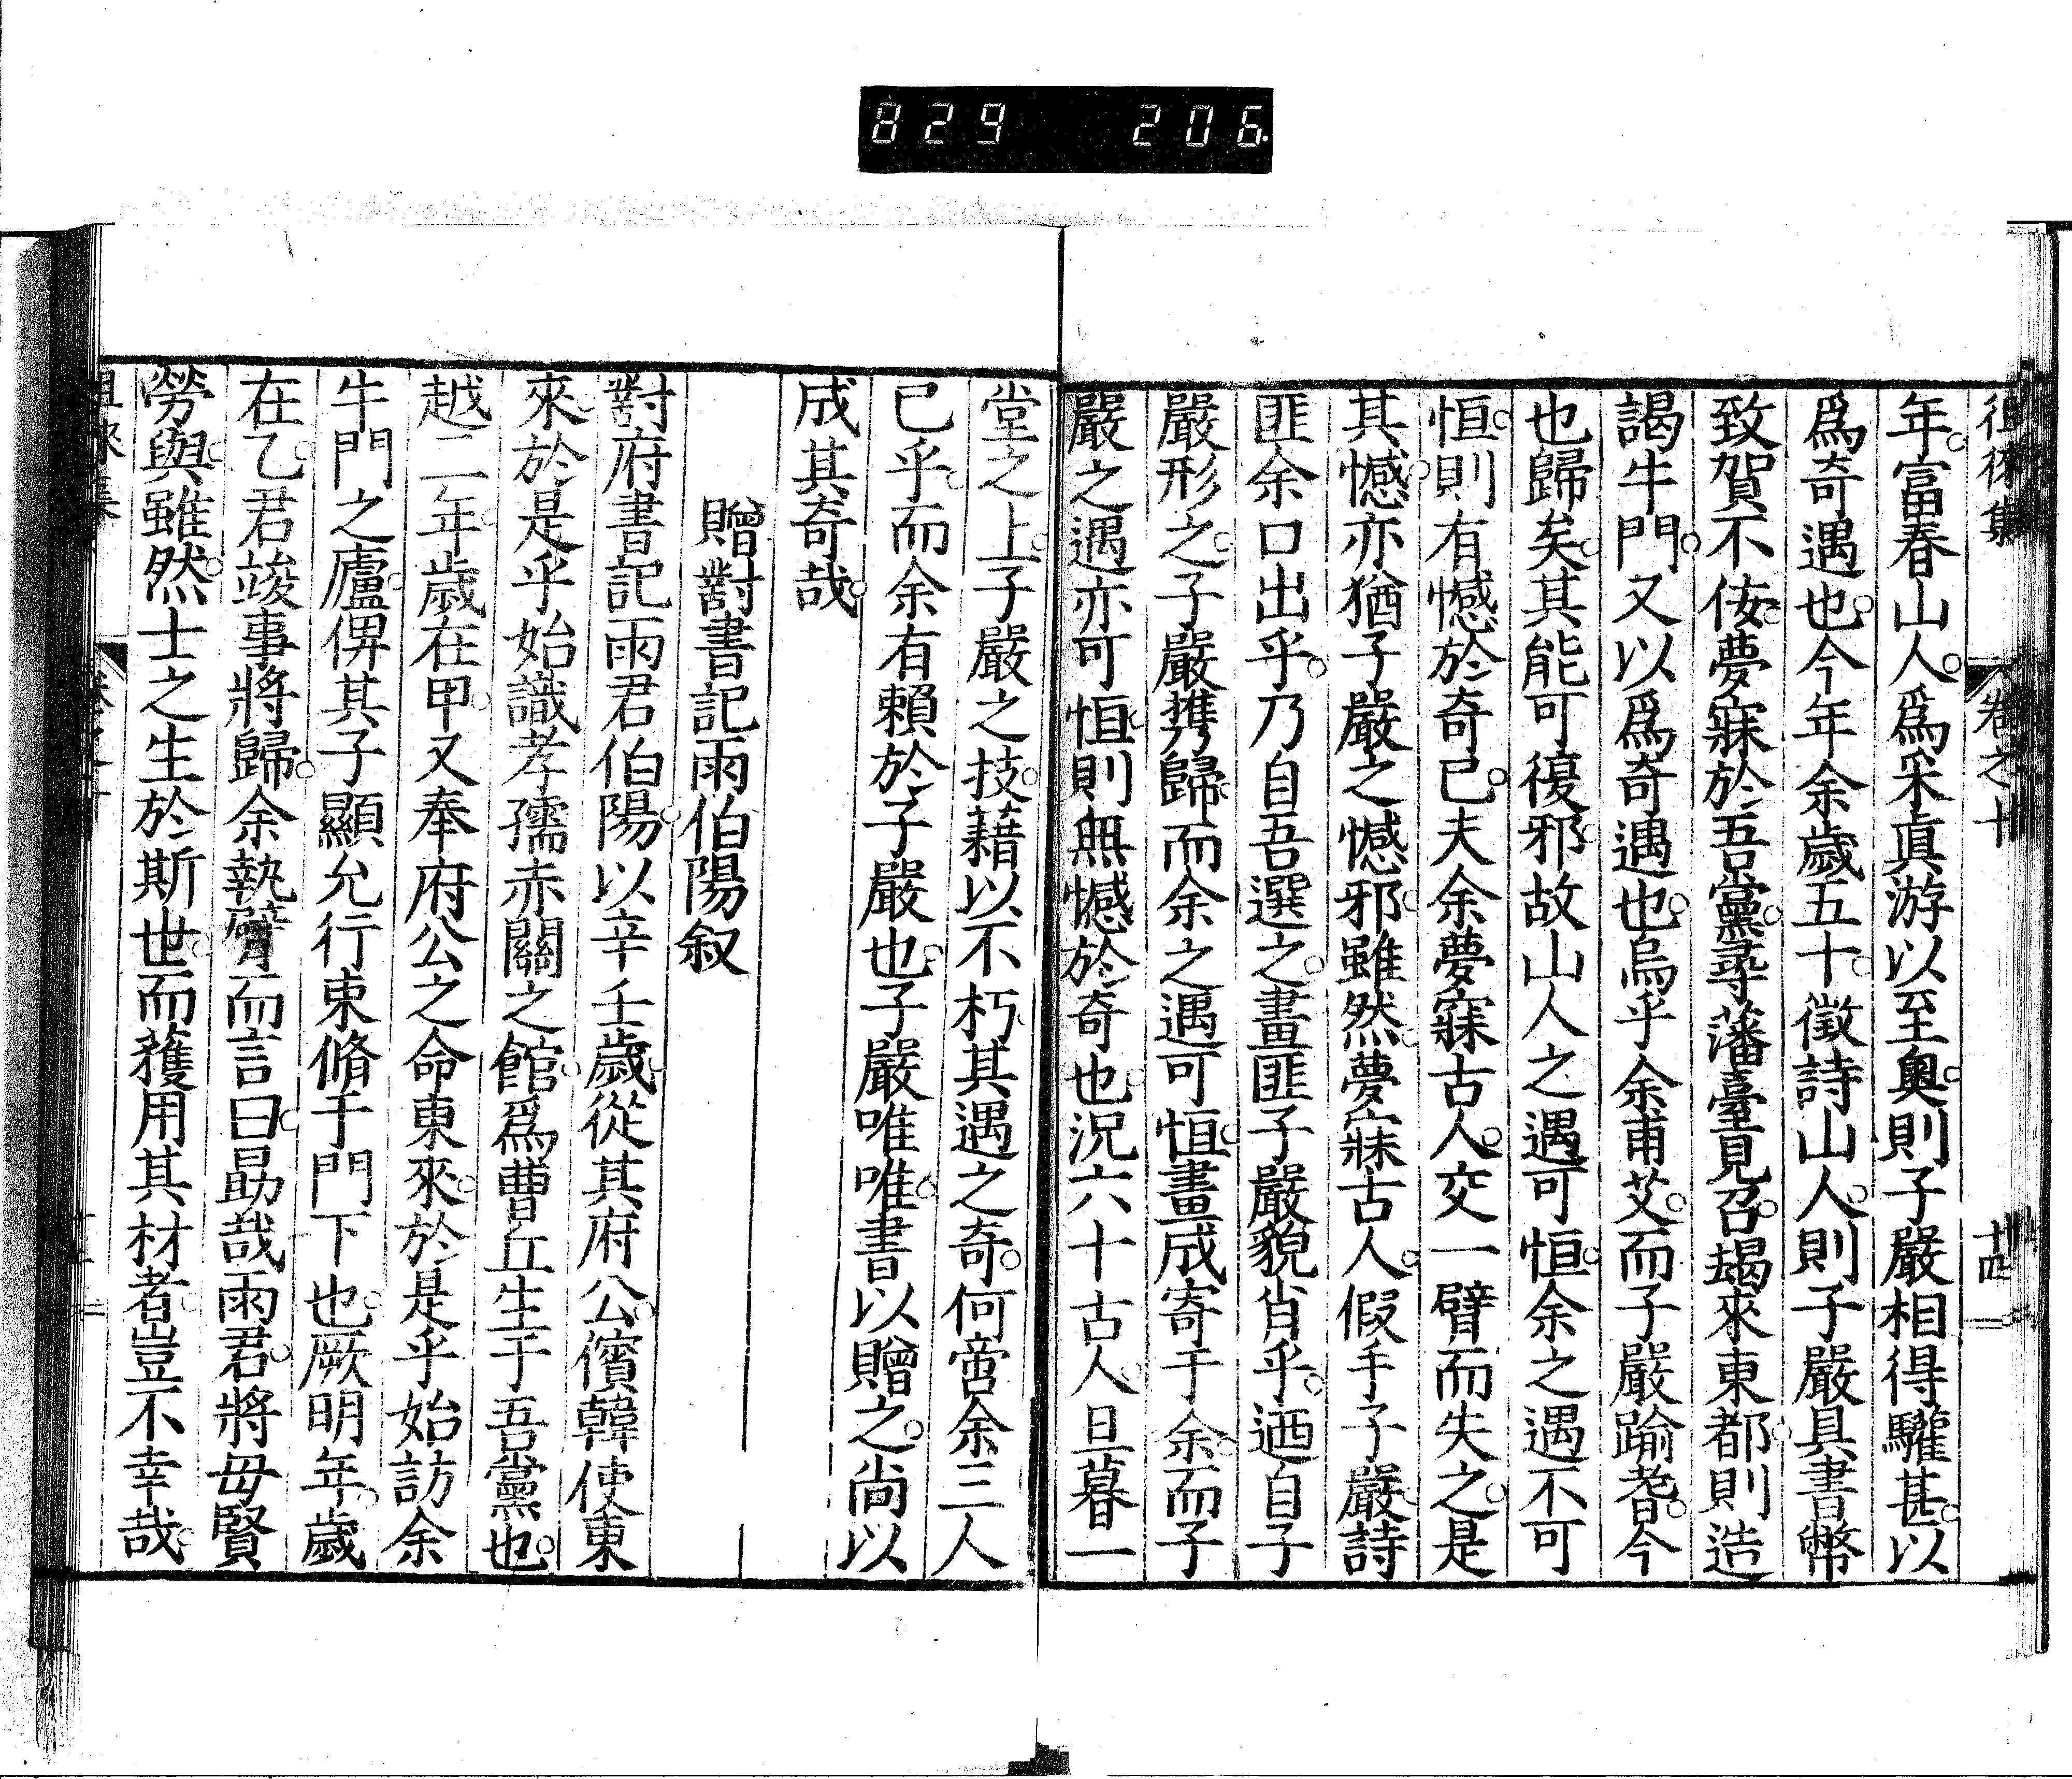 829 206
徂徠集 卷之十 十四
年富春山人爲采眞游以至奧則子嚴相得驩甚以
爲奇遇也今年余歲五十徵詩山人則子嚴具書幣
致賀不佞夢寐於吾黨尋藩臺見召朅來東都則造
謁牛門又以爲奇遇也烏乎余甫艾而子嚴踰耆今
也歸矣其能可復邪故山人之遇可恒余之遇不可
恒則有憾於奇已夫余夢寐古人交一臂而失之是
其憾亦猶子嚴之憾邪雖然夢寐古人假手子嚴詩
匪余口出乎乃自吾選之畫匪子嚴貌肖乎迺自子
嚴形之子嚴携歸而余之遇可恒畫成寄于余而子
嚴之遇亦可恒則無憾於奇也況六十古人旦暮一
堂之上子嚴之技藉以不朽其遇之奇何啻余三人
已乎而余有賴於子嚴也子嚴唯唯書以贈之尚以
成其奇哉
贈對書記雨伯陽叙
對府書記雨君伯陽以辛壬歲從其府公儐韓使東
來於是乎始識孝孺赤關之館爲曹丘生于吾黨也
越二年歲在甲又奉府公之命東來於是乎始訪余
牛門之廬俾其子顯允行束脩于門下也厥明年歲
在乙君竣事將歸余執臂而言曰勗哉雨君將毋賢
勞與雖然士之生於斯世而獲用其材者豈不幸哉